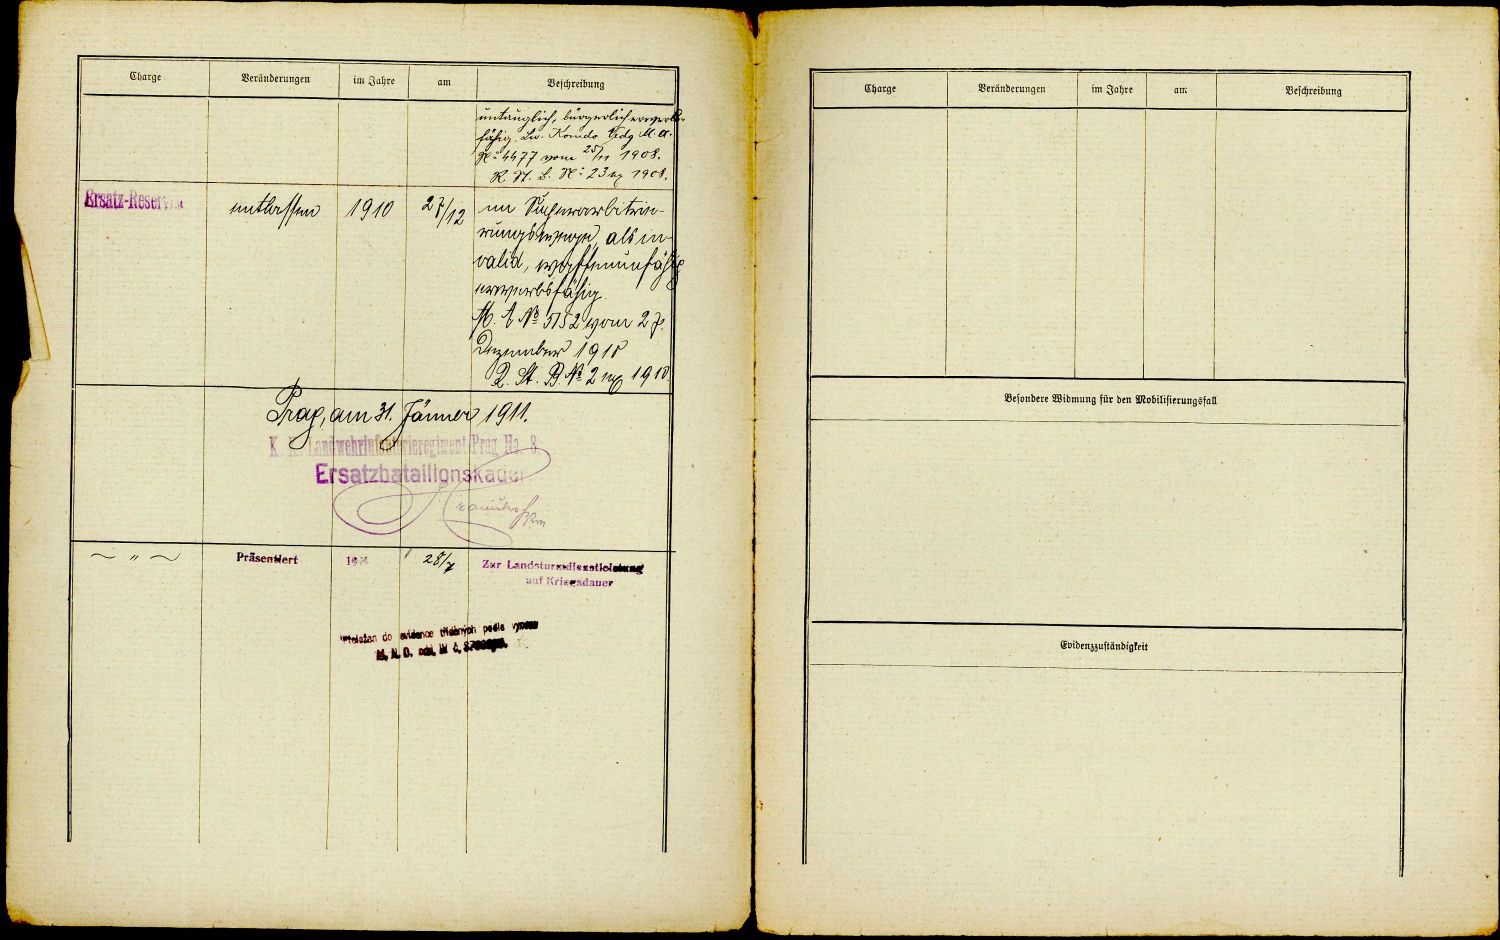 Charge Veränderungen im Jahre am Beschreibung
untauglich, bürgerlich erwerbs-
fähig. Lw. Komdo M. A.
No 4477 vom 25/11 1908.
R. St. B. No 23 ex 1908.
Ersatz-Reservist entlassen 1910 27/12 im Superarbitrie-
rungswege, als in-
valid, waffenunfähig
erwerbsfähig.
M. A No 5152 vom 27.
Dezember 1910
R. St. B No 2 ex 1910.
Prag, am 31. Jänner 1911.
K. K. Landwehrinfanterieregiment Prag No. 8.
Ersatzbataillonskader.
〃 Präsentiert 28/7 Zur Landsturmdienstleistung
auf Kriegsdauer
do evidence tříděných podle
M. N. O.
Charge Veränderungen im Jahre am Beschreibung
Besondere Widmung für den Mobilisierungsfall
Evidenzzuständigkeit